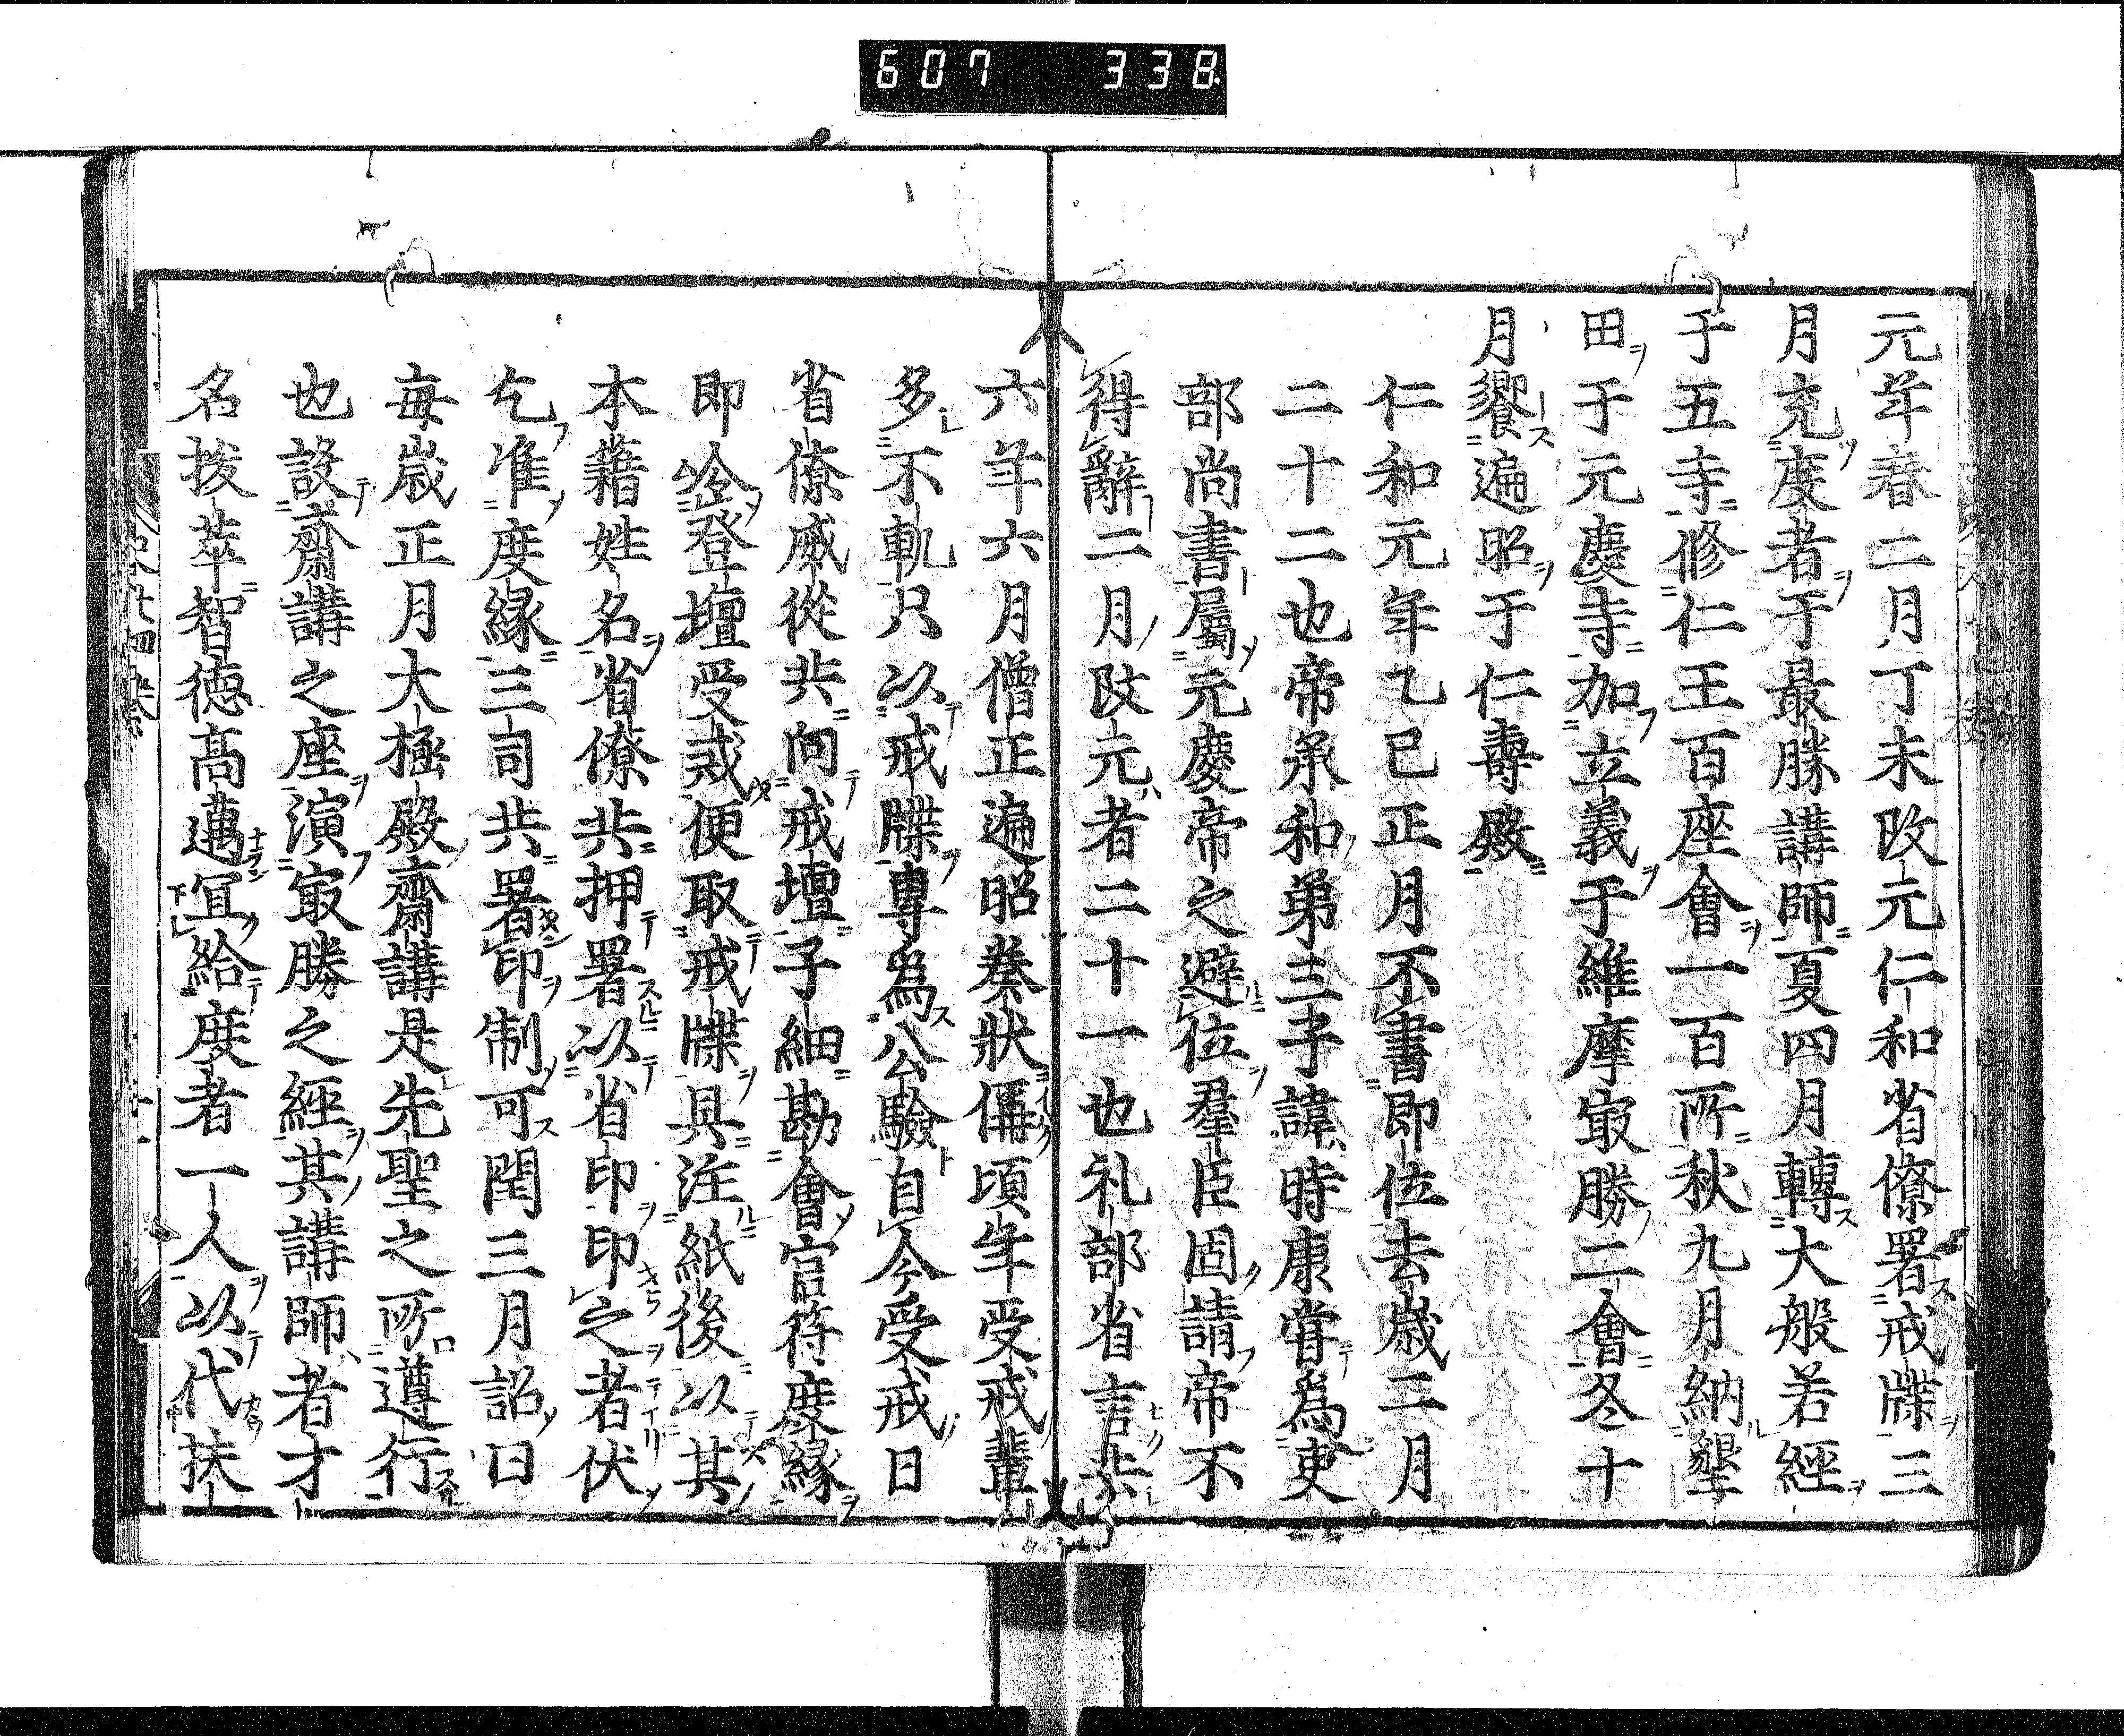 607 338
元年春二月丁未改元仁和省僚署戒牒三
月充度者于最勝講師夏四月轉大般若經
于五寺修仁王百座會一百所秋九月納墾
田于元慶寺加立義于維摩㝡勝二會冬十
月饗遍昭于仁壽殿
仁和元年乙巳正月不書即位去歳二月
二十二也帝承和弟三子諱時康甞爲吏
部尚書屬元慶帝之避位羣臣固請帝不
得辭二月改元者二十一也礼部省言共
六年六月僧正遍昭奏狀偁頃年受戒輩
多不軌只以戒牒專爲公驗自今受戒日
省僚威從共向戒壇子細勘會官符度縁
即令登壇受戒便取戒牒具注紙後以其
本籍姓名省僚共押署以省印印之者伏
乞准度縁三司共署印制可閏三月詔曰
毎歳正月大極殿齋講是先聖之所遵行
也設齋講之座演㝡勝之經其講師者才
名拔萃智徳高邁冝給度者一人以代扶